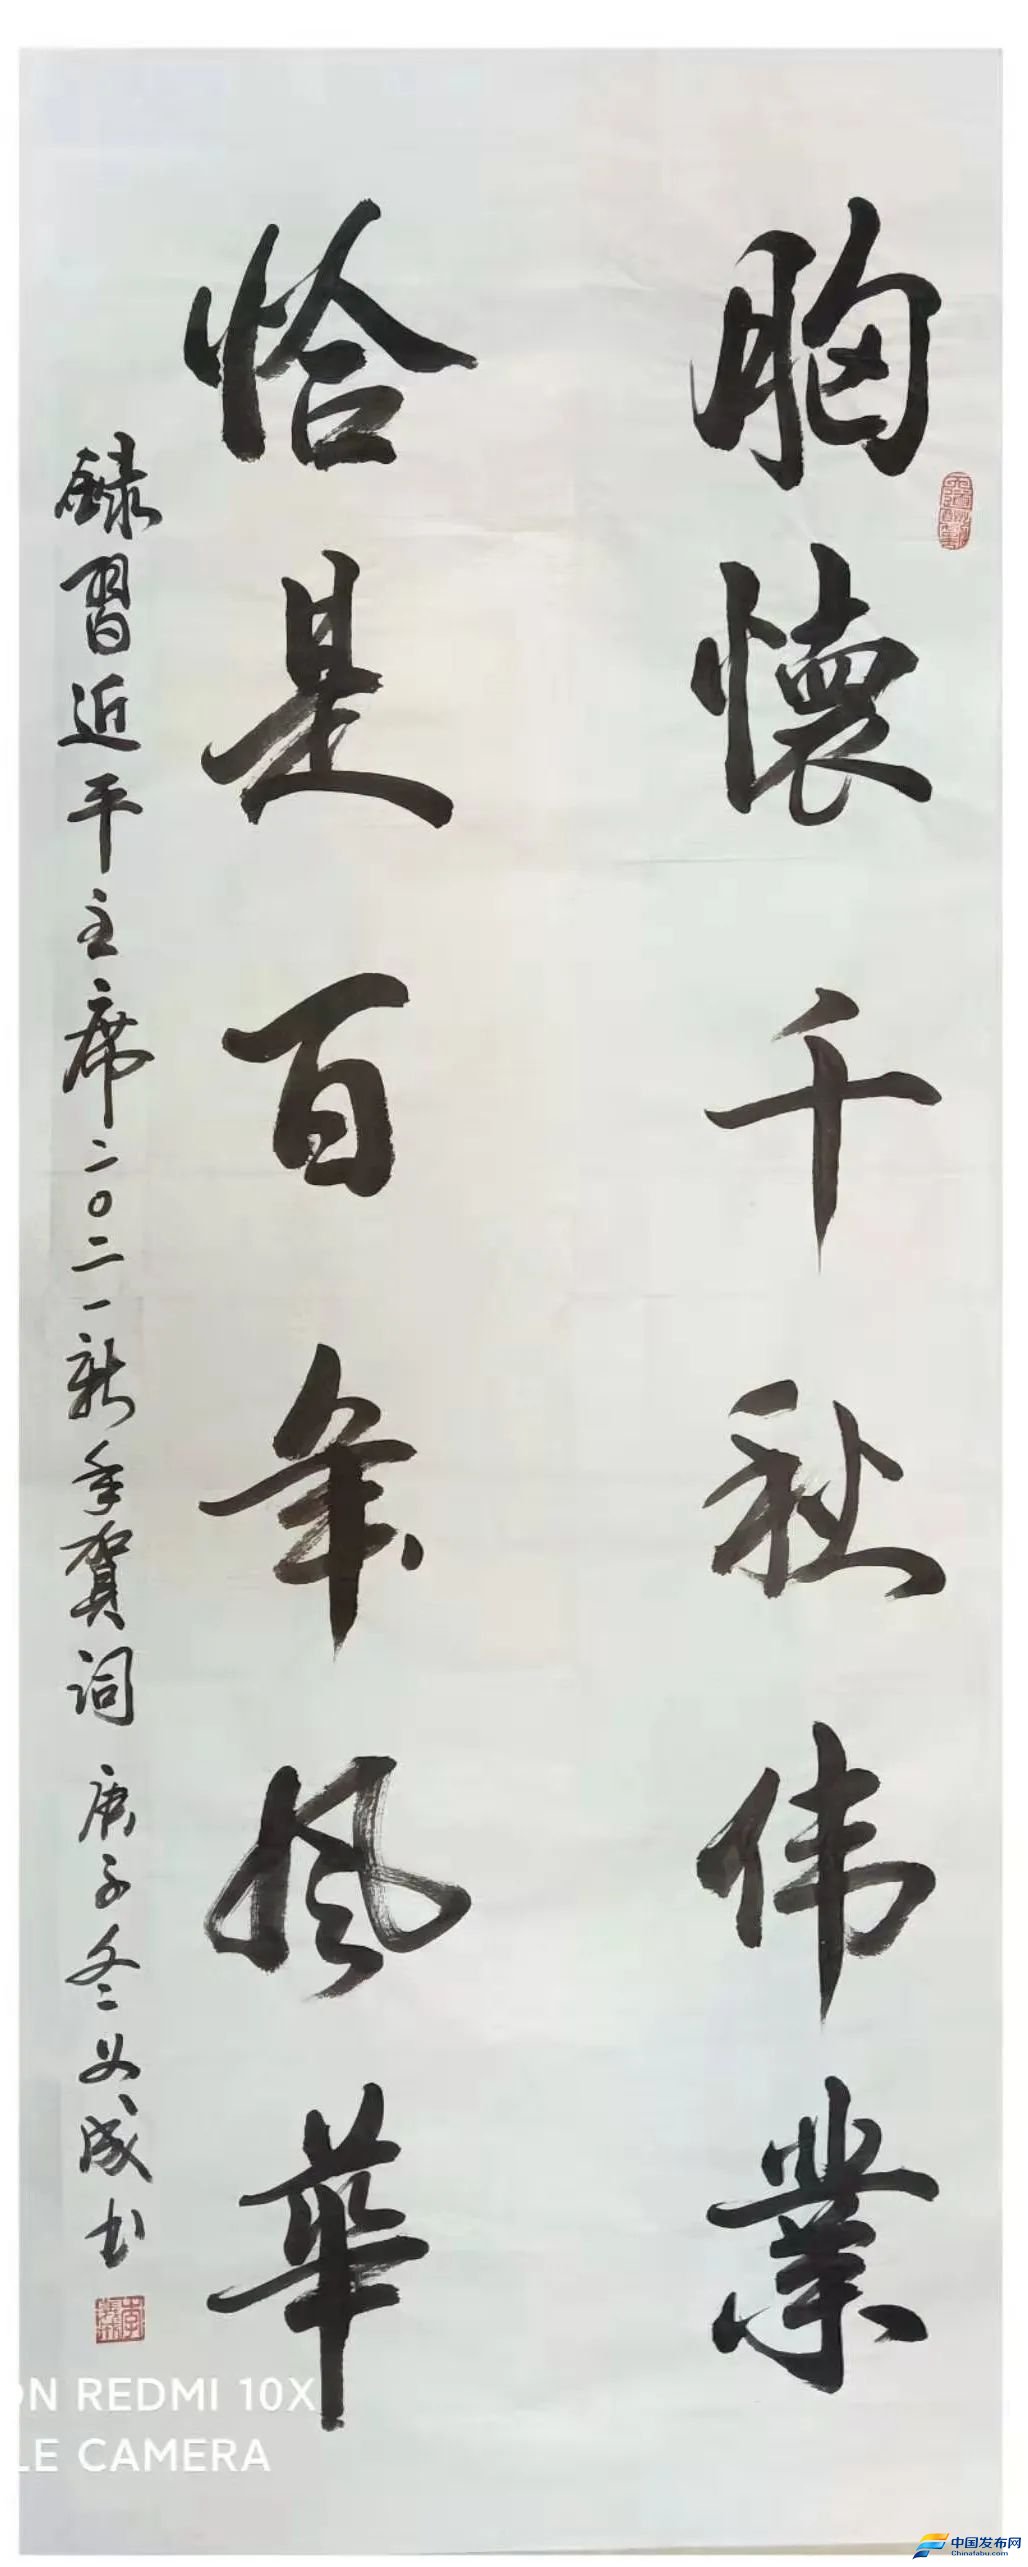 胸懷千秋伟業
恰是百年風華
録習近平主席二〇二一新年賀詞 庚子冬义成书
ON REDMI 10X
LE CAMERA
中国发布网
Chinafabu.com